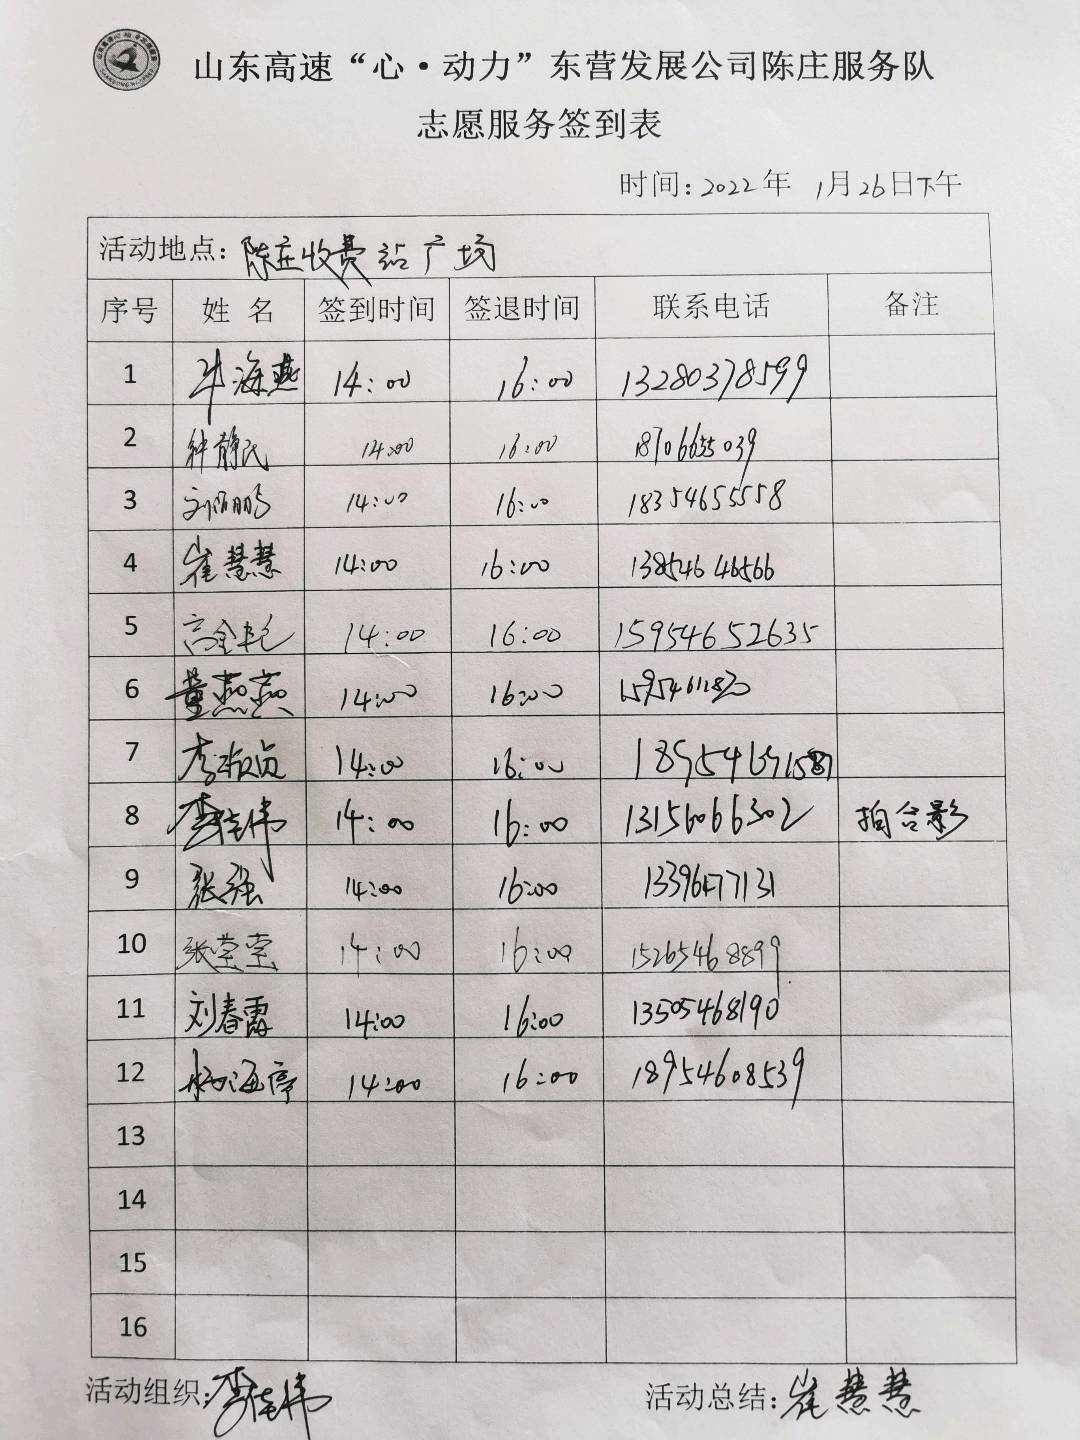 山东高速“心·动力”东营发展公司陈庄服务队
志愿服务签到表
时间:2022年 1月26日下午
活动地点:陈庄收费站广场
序号 姓名 签到时间 签退时间 联系电话 备注
1 牛海燕 14:00 16:00 13280378599
2 钟静民 14:00 16:00 18706655039
3 刘鹏 14:00 16:00 18354655558
4 崔慧慧 14:00 16:00 13854646566
5 高全 14:00 16:00 15954652635
6 董燕燕 14:00 16:00
7 李淑贞 14:00 16:00
8 李佳伟 14:00 16:00 13156066302 拍合影
9 张强 14:00 16:00 13396477131
10 张莹莹 14:00 16:00 15265468899
11 刘春霞 14:00 16:00 13505468190
12 杨海亭 14:00 16:00 18954608539
13
14
15
16
活动组织:李佳伟 活动总结:崔慧慧